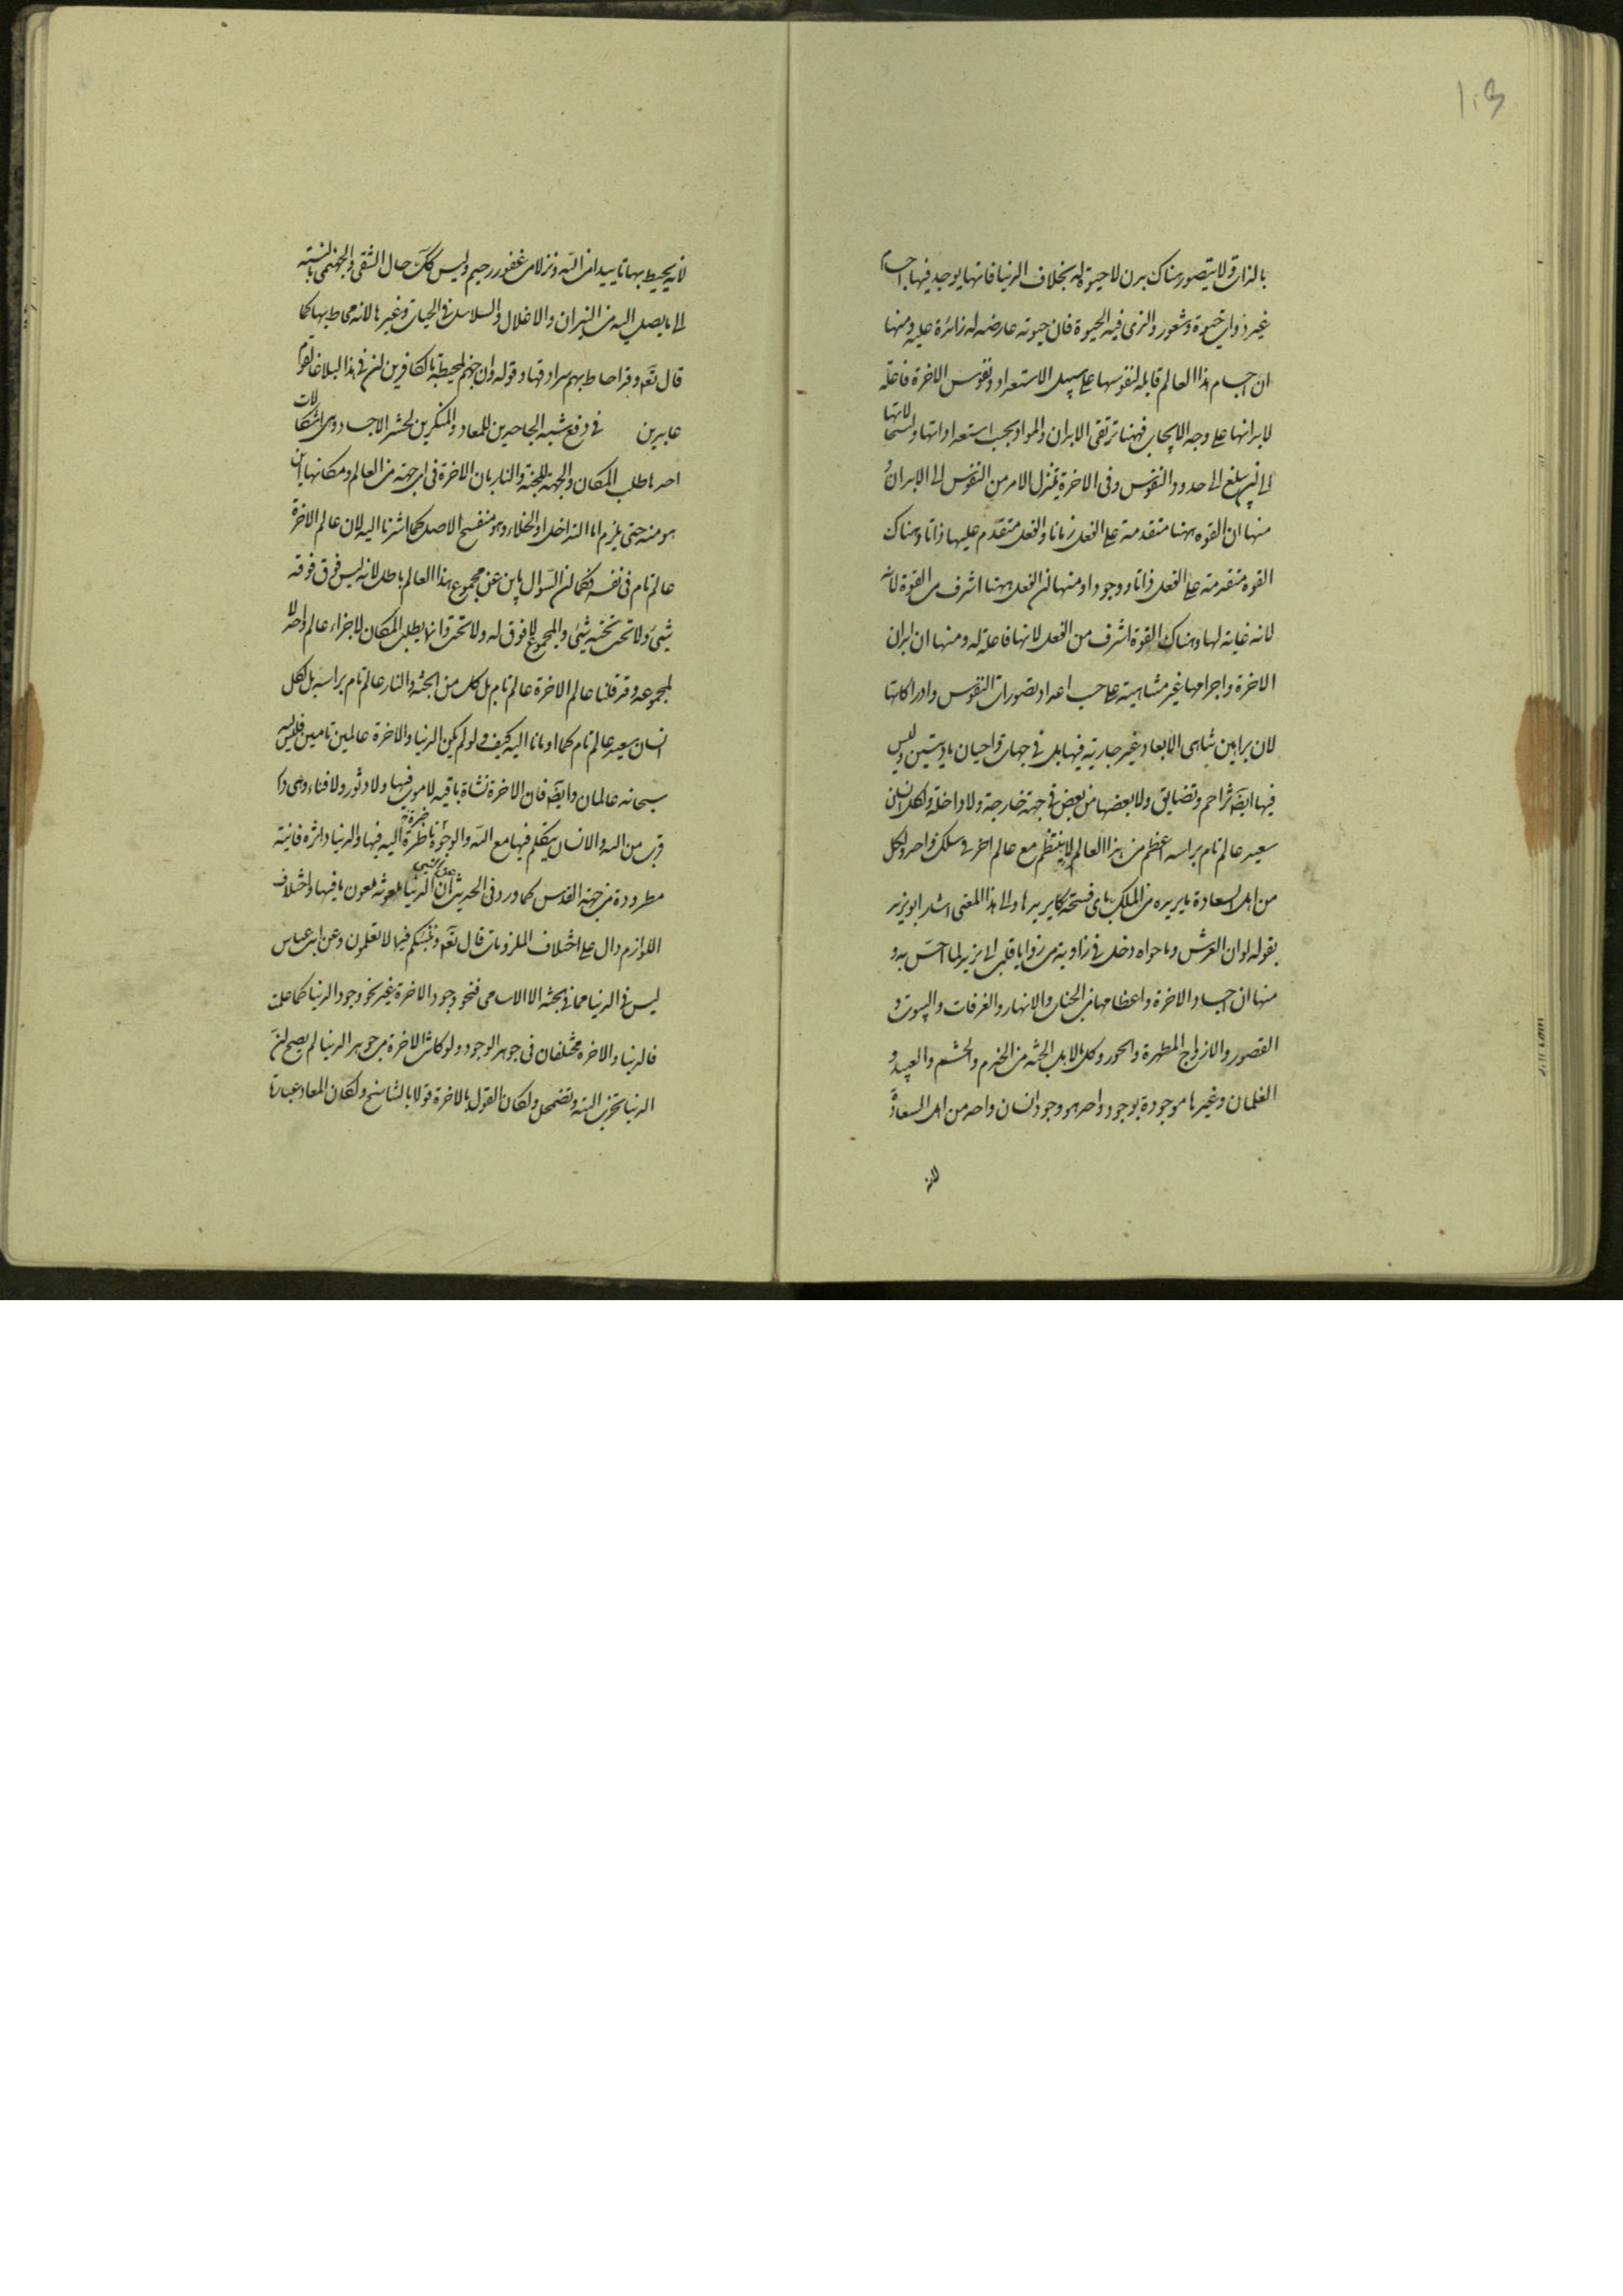 ١٠٣
بالذات ولا يتصور هناك بدن لا حيوة له بخلاف الدنيا فانها يوجد فيها اجسام
غير ذوات حيوة وشعور والذى فيه الحيوة فان حيوته عارضه له زائرة عليه ومنها
ان اجسام هذا العالم قابله لنفوسها على سبيل الاستعداد ونفوس الاخرة فاعلة
لابدانها على وجه الايجاب فههنا ترتقى الابدان والمواد بحسب استعداداتها واستحالاتها
الى ان يبلغ الى حدود النفوس وفى الاخرة يتنزل الامر من النفوس الى الابدان و
منها ان القوه ههنا متقدمة على الفعل زمانا والفعل متقدم عليها ذاتا وهناك
القوه متقدمة على الفعل ذاتا ووجودا ومنها ان الفعل ههنا اشرف من القوة لانه
لانه غاية لها وهناك القوة اشرف من الفعل لانها فاعلة له ومنها ان ابدان
الاخرة واجرامها غير متناهية على حسب اعداد تصورات النفوس وادراكاتها
لان براهين تناهى الابعاد غير جارية فيها بل فى جهات واحيان ماديتين وليس
فيها ايضا تزاحم وتضايق ولا بعضها من بعض فى جهة خارجة ولا داخلة ولكل انسان
سعيد عالم تام براسه اعظم من هذا العالم لا ينتظم مع عالم اخر فى سلك واحد ولكل
من اهل السعادة ما يريده من الملك باى فسحة كما يريدها والى هذا المعنى اشار ابويزيد
بقوله لو ان العرش وما حواه دخل فى زاوية من زوايا قلب ابى يزيد لما احس به و
منها ان اجساد الاخرة واعظامها من الجنان والانهار والغرفات والبيوت و
القصور والازواج المطهرة والحور وكل ما لاهل الجنة من الخدم والحشم والعبيد و
الغلمان وغيرها موجودة بوجود واحد هو وجود انسان واحد من اهل السعادة
لانه
لانه يحيط بها تاييدا من الله ونزلا من غفور رحيم وليس كك حال الشقى والجهنمى بالنسبة
الى ما يصل اليه من النيران والاغلال والسلاسل فى الحيات وغيرها لانه محاط بها كما
قال تعه وقد احاط بهم سرادقها وقوله وان جهنم لمحيطة بالكافرين ان فى هذا لبلاغا لقوم
عابدين فى دفع شبه الجاحدين للمعاد والمنكرين لحشر الاجساد وهى اشكالات
احدها طلب المكان والجهة للجنة والنار بان الاخرة فى اى جهة من العالم ومكانها اين
هو منه حتى يلزم اما التداخل او الخلاء وهو منفسخ الاصل كما اشرنا اليه لان عالم الاخرة
عالم تام فى نفسه فكما ان السوال باين عن مجموع هذا العالم باطل لانه ليس فوق فوقه
شئ ولا تحت تحته شئ والمجموع لا فوق له ولا تحت وانما يطلب المكان لاجزاء عالم واحد لا
لمجموعه وقد قلنا عالم الاخرة عالم تام بل كل من الجنة والنار عالم تام براسه بل لكل
انسان سعيد عالم تام كما اومانا اليه كيف ولو لم يكن الدنيا والاخرة عالمين تامين فليس لله
سبحانه عالمان وايضا فان الاخرة نشاة باقيه لا موت فيها ولا دثور ولا فناء وهى دار
قرب من الله والانسان يتكلم فيها مع الله والوجوه ناضرة ناظرة اليه فيها والدنيا داثره فانية
مطرودة من جهة القدس كما ورد فى الحديث عن النبى ان الدنيا ملعونه ملعون ما فيها واختلاف
اللوازم دال على اختلاف الملزومات قال تعه وننشئكم فيما لا تعلمون وعن ابن عباس
ليس فى الدنيا مما فى الجنة الا الاسامى فنحو وجود الاخرة غير نحو وجود الدنيا كما علمت
فالدنيا والاخره مختلفان فى جوهر الوجود ولو كانت الاخرة من جوهر الدنيا لم يصح ان
الدنيا تخرب البته وتضمحل ولكان القول بالاخرة قولا بالتناسخ ولكان المعاد عبارة